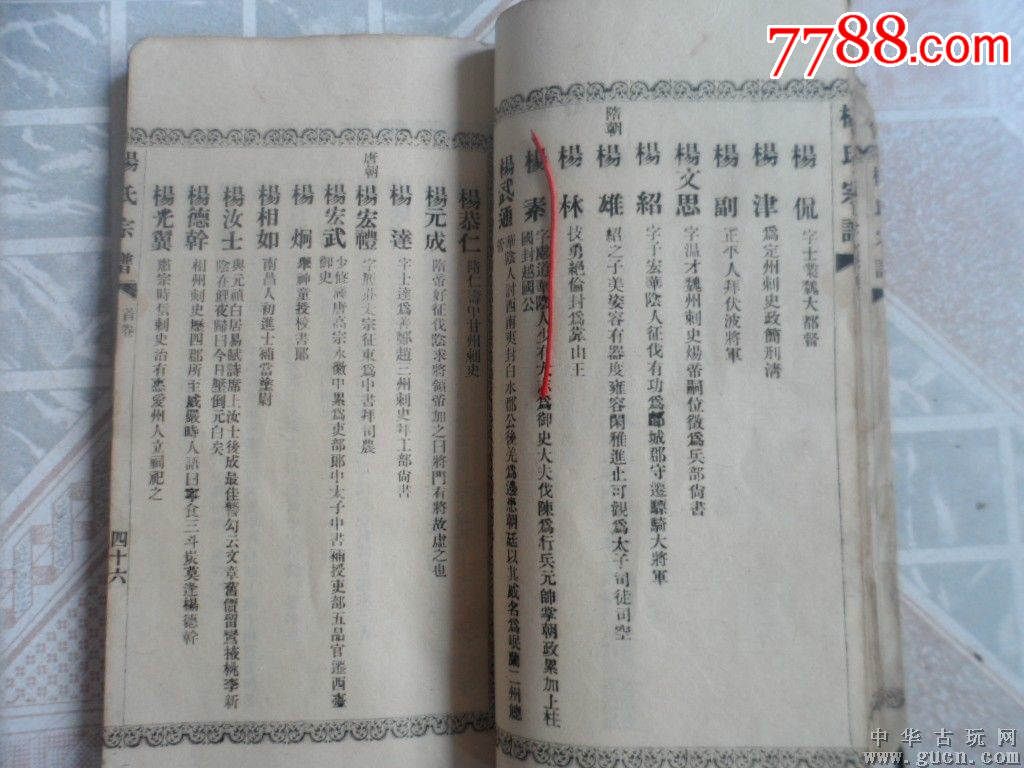 7788.com
楊侃 字士業魏大都督
楊津 為定州刺史政簡刑清
楊副 正平人拜伏波將軍
楊文思 字溫才魏州刺史煬帝嗣位徵為兵部尚書
楊紹 字子宏華陰人征伐有功為鄃城郡守遷驃騎大將軍
楊雄 紹之子美姿容有器度雍容閑雅進止可觀為太子司徒司空
隋朝
楊林 技勇絕倫封為靠山王
楊素 字處道華陰人少有大志為御史大夫伐陳為行兵元帥掌朝政累加上柱
國封越國公
楊武通 華陰人討西南夷封白水郡公後羌為邊患朝廷以其威名為岷蘭二州總
管
楊恭仁 隋仁壽中甘州刺史
楊元成 隋帝好征伐陰求將領帝加之曰將門有將故虛之也
楊達 字士達為善鄭趙三州刺史年工部尚書
唐朝
楊宏禮 宗征東為中書拜司農
楊宏武 少修謹唐高宗永徽中累為吏部郎中太子中書補授吏部五品官遷西臺
御史
楊炯 舉神童授校書郎
楊相如 南昌人初進士補當塗尉
楊汝士 與元稹白居易賦詩席上汝士後成最佳警句云文章舊價留鸞掖桃李新
陰在鯉夜歸曰今日壓倒元白矣
楊德幹 相州刺史歷四郡所主威嚴時人語曰寧食三斗炭莫逢楊德幹
楊光翼 肅宗時信刺史治有惠愛州人立祠祀之
楊氏宗譜
首卷
四十六
中华古玩网
www.gucn.com